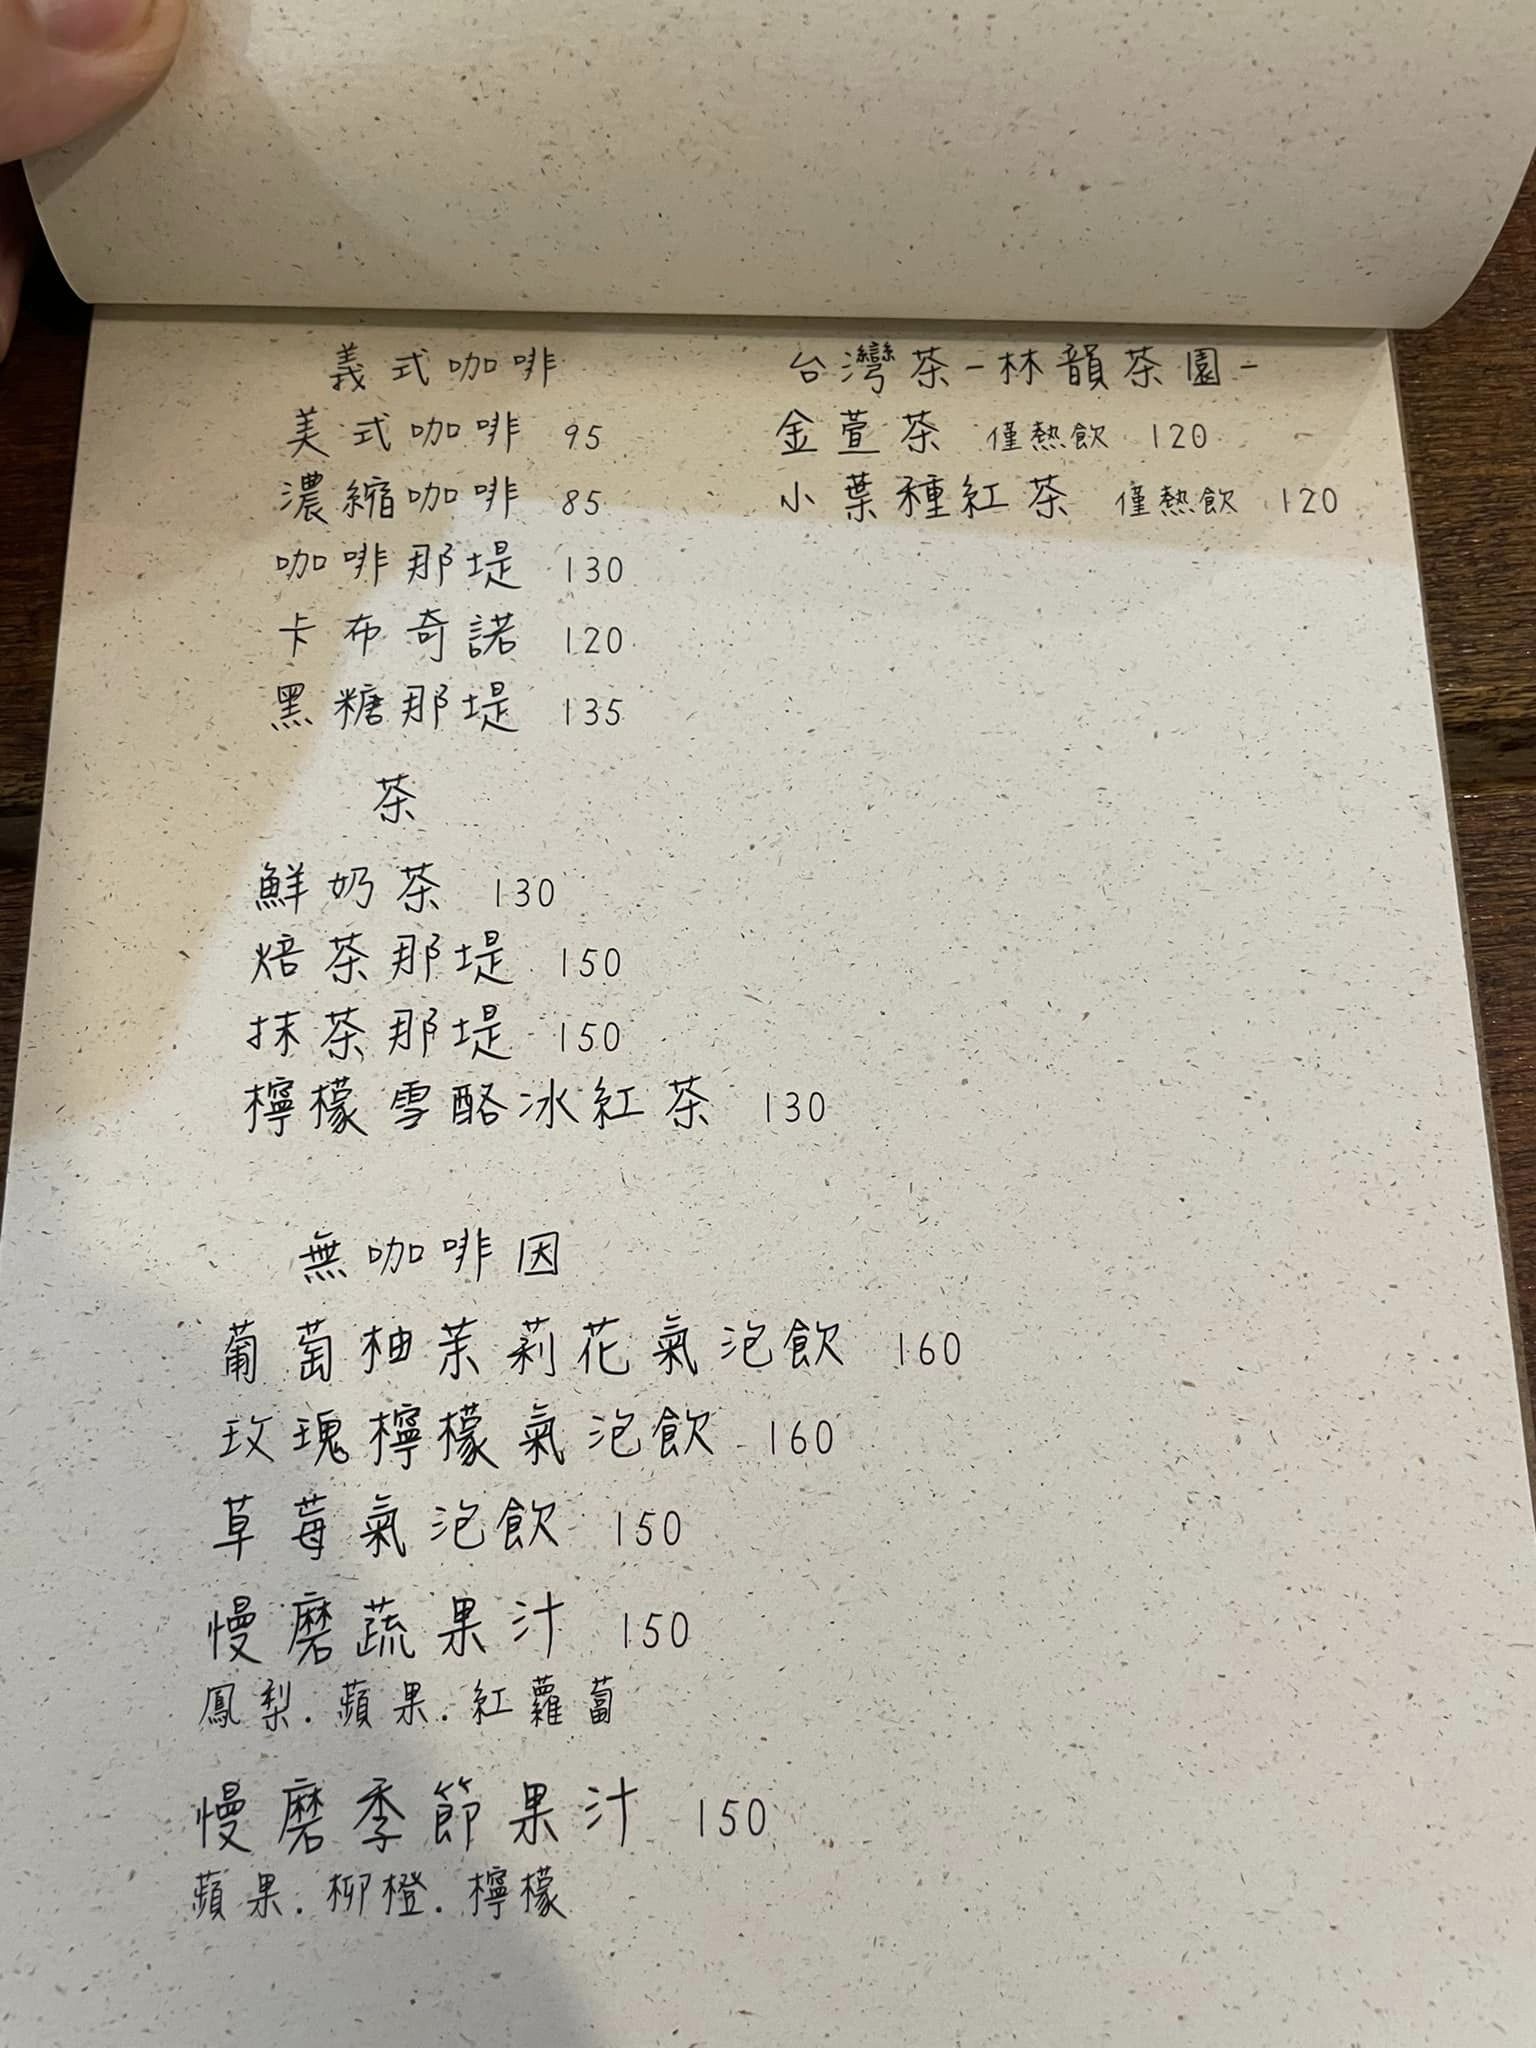 義式咖啡
美式咖啡 95
濃縮咖啡 85
咖啡那堤 130
卡布奇諾 120
黑糖那堤 135
茶
鮮奶茶 130
焙茶那堤 150
抹茶那堤 150
檸檬雪酪冰紅茶 130
無咖啡因
葡萄柚茉莉花氣泡飲 160
玫瑰檸檬氣泡飲 160
草莓氣泡飲 150
慢磨蔬果汁 150
鳳梨.蘋果.紅蘿蔔
慢磨季節果汁 150
蘋果.柳橙.檸檬
台灣茶-林韻茶園-
金萱茶 僅熱飲 120
小葉種紅茶 僅熱飲 120